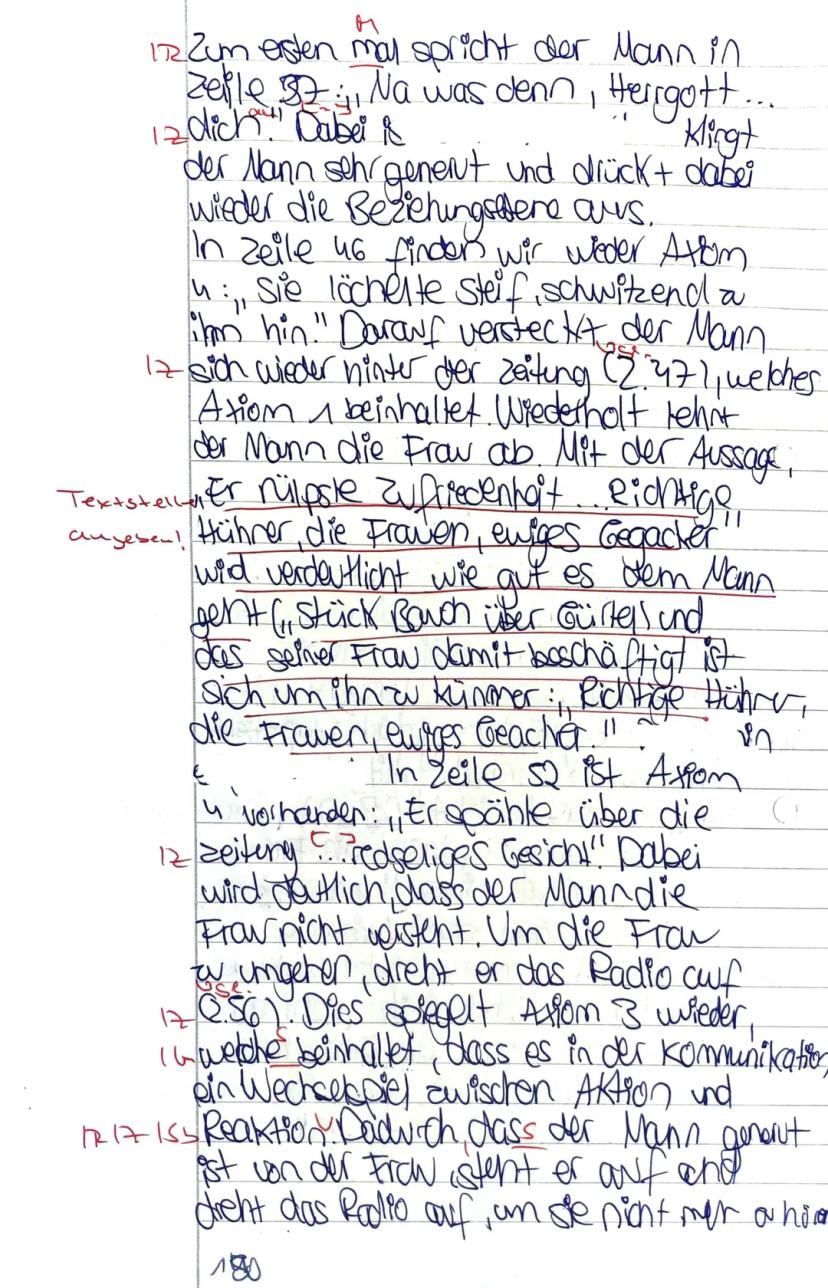 M
1R Zum ersten mal spricht der Mann in
Zeile 37: „Na was denn, Herrgott...
auf"
1Z dich." Dabei klingt
der Mann sehr genervt und drückt dabei
wieder die Beziehungsebene aus.
In Zeile 46 finden wir wieder Axiom
4: „Sie lächelte steif, schwitzend zu
ihm hin." Darauf versteckt der Mann
1Z sich wieder hinter der Zeitung (Z. 47), welches
Axiom 1 beinhaltet. Wiederholt lehnt
der Mann die Frau ab. Mit der Aussage,
Textstellen „Er rülpste Zufriedenheit... Richtige
angeben! Hühner, die Frauen, ewiges Gegacker"
wird verdeutlicht wie gut es dem Mann
geht („Stück Bauch über Gürtel) und
das seiner Frau damit beschäftigt ist
sich um ihn zu kümmer: „Richtige Hühner,
die Frauen, ewiges Geacher." in
In Zeile 52 ist Axiom
4 vorhanden: „Er spähte über die
1Z zeitung [...] redseliges Gesicht." Dabei
wird deutlich, dass der Mann die
Frau nicht versteht. Um die Frau
zu umgehen, dreht er das Radio auf
1Z (Z. 56). Dies spiegelt Axiom 3 wieder,
s
1G welche beinhaltet, dass es in der Kommunikation
ein Wechselspiel zwischen Aktion und
Reaktion. Dadurch, dass der Mann genervt
ist von der Frau, steht er auf und
dreht das Radio auf, um sie nicht mer
180